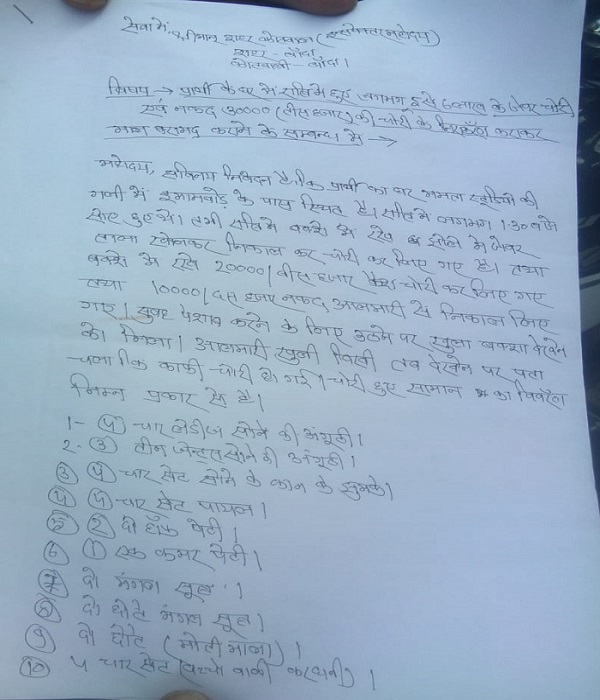 सेवा में, श्रीमान शहर कोतवाल (इंस्पेक्टर महोदय)
शहर - बाँदा
कोतवाली - बाँदा।
विषय → प्रार्थी के घर में रात्रि में हुए लगभग 6 लाख के जेवर चोरी
एवं नकद 30000 (तीस हजार) की चोरी के कराकर
माल बरामद कराने के सम्बन्ध में →
महोदय, सविनय निवेदन है कि प्रार्थी का घर की
गली में इमामबाड़े के पास स्थित है। रात्रि में लगभग 1:30 बजे
तभी रात्रि में बक्से में रखे में जेवर
ताला खोलकर निकाल कर चोरी कर लिए गए है। तथा
बक्से में रखे 20000/ बीस हजार चोरी कर लिए गए
तथा 10000/ दस हजार नकद, आलमारी से निकाल लिए
गए। सुबह पेशाब करने के लिए उठने पर खुला बक्शा देखने
को मिला। आलमारी खुली मिली तब देखने पर पता
चला कि काफी चोरी हो गई। चोरी हुए सामान का विवरण
निम्न प्रकार से है।
1- ४ चार लेडीज सोने की अंगूठी।
2- ③ तीन जेन्ट्स सोने की अंगूठी।
③ ४ चार सेट सोने के कान के झुमके।
४ ४ चार सेट पायल।
5 2 दो पेटी।
6 ① एक कमर पेटी।
7 दो मंगल सूत्र।
8 दो छोटे मंगल सूत्र।
9 दो छोटे (मोती माला)।
10 ४ चार सेट (बच्चो वाली करधनी)।